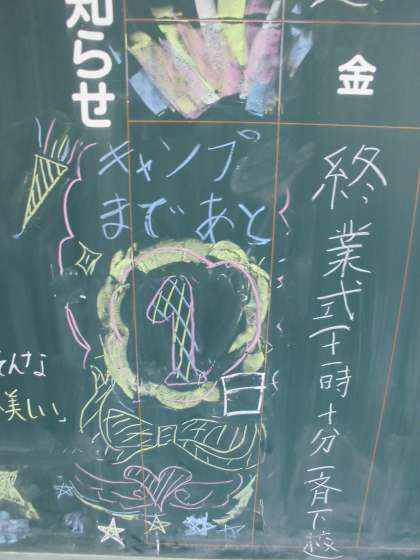 知らせ
金
終業式(十一時十分一斉下校
キャンプ
まであと
1
日
そんな
美しい」